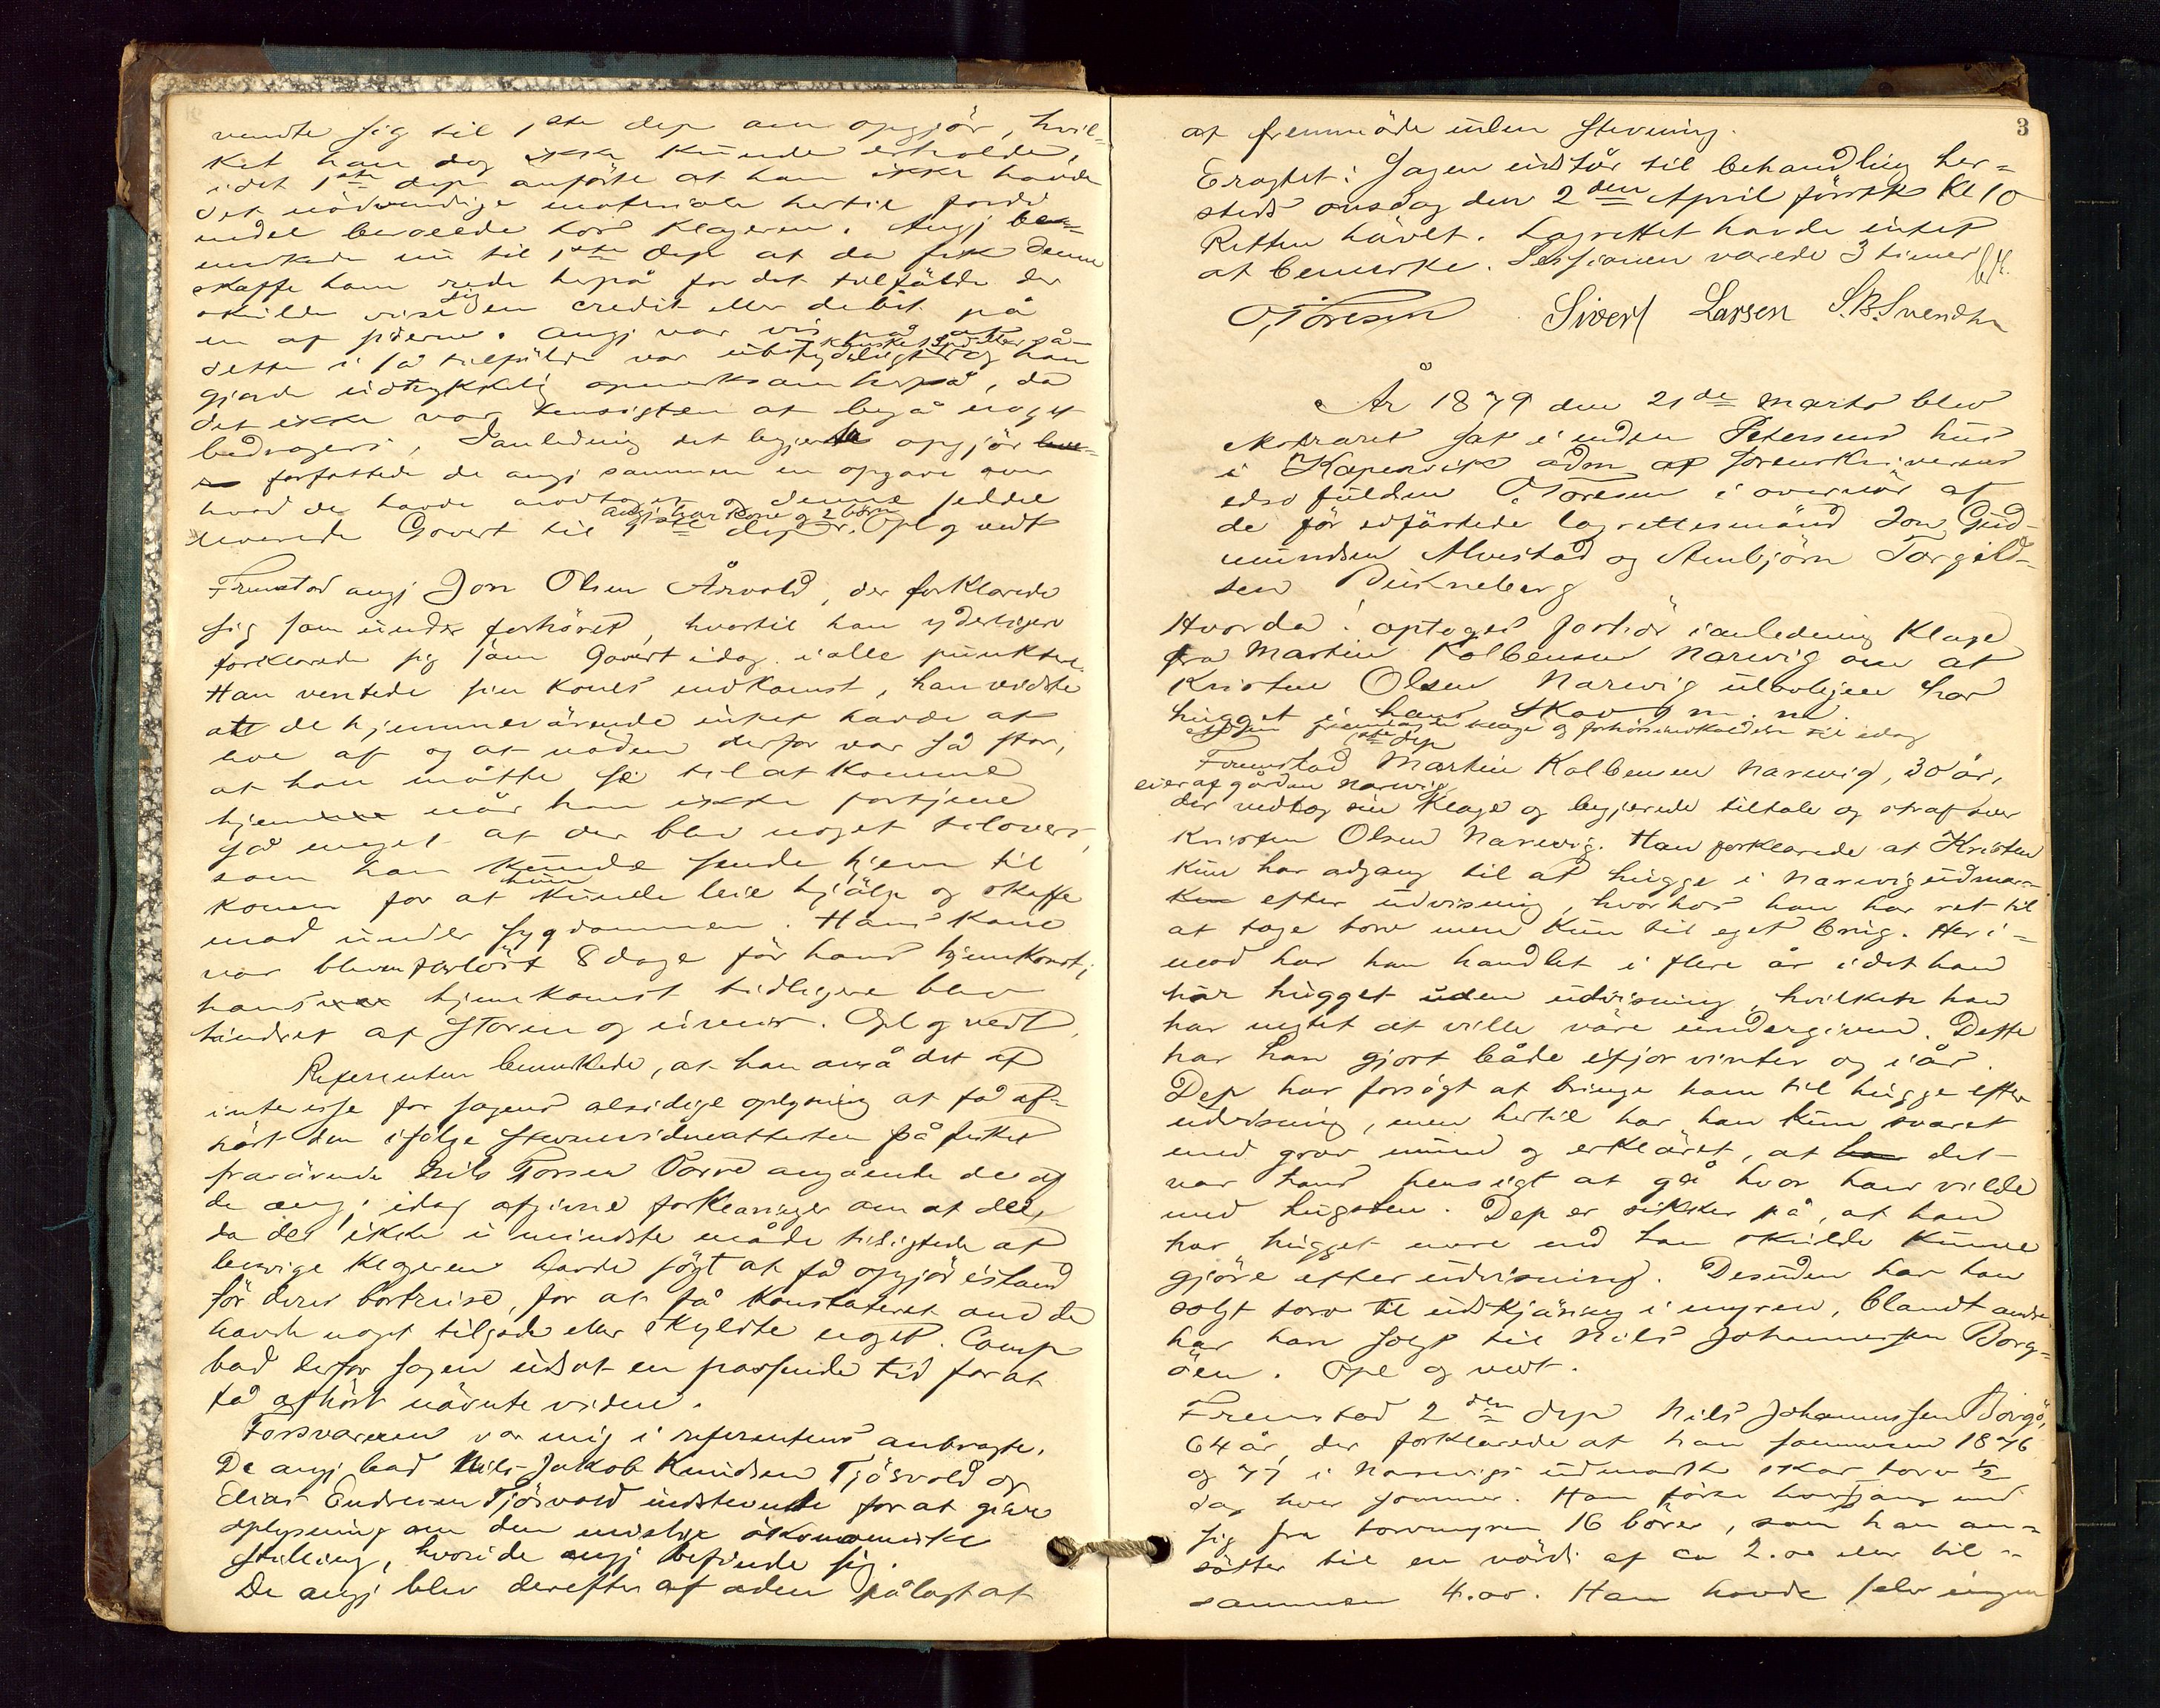 vendte sig til 1ste dep om opgjör, hvil-
ket han dog ikke kunde erholde,
idet 1ste dep anförte at han ikke havde
det nödvendige materiale hertil fordi
endel beroede hos Klageren. Angj be-
merkede nu til 1ste dep at da fik denne
skaffe ham rede herpå for det tilfälde der
skulde vise sig en credit eller debet på
en af siderne. Angj var vis på at
dette i så tilfälde var ubetydeligt og han
gjorde udtrykkelig opmerksom herpå, da
det ikke var hensigten at begå noget
bedrageri. I anledning det begjerte opgjör
forfattede de angj sammen en opgave over
hvad de havde modtaget og denne seddel
leverede Govert til 1ste dep. Opl og vedt
angj har kone og 2 börn
Fremstod angj Jon Olsen Årvold, der forklarede
sig som under forhöret, hvortil han yderligere
forklarede sig som Govert idag i alle punkter.
Han ventede sin kones nedkomst, han vidste
att de hjemmeværende intet havde at
leve af og at nöden derfor var så stor,
at han måtte se til at komme
hjem når han ikke fortjene
så meget at der blev noget tilovers,
som han kunde sende hjem til
konen for at hun kunde leie hjälp og skaffe
mad under sygdommen. Hans kone
var bleven forlöst 8 dage för hans hjemkomst;
hans hjemkomst tidligere blev
hindret af storm og uveir. Opl og vedt.
Referenten bemerkede, at han anså det af
interesse for sagens alsidige oplysning at få af-
hört den ifölge stevnevidneattesten på fisket
fraværende Nils Torsen Vorre angående de af
de angj idag afgivne forklaringer om at de,
da de ikke i mindste måde tilsigtede at
besvige Klageren havde sögt at få opgjör istand
för deres bortreise, for at få konstateret om de
havde noget tilgode eller skyldte noget. Comp
bad derfor sagen udsat en passende tid for at
få afhört nävnte vidne.
Forsvareren var enig i referentens anbragte.
De angj bad Nils Jakob Knudsen Tjösvold og
Elias Endresen Tjösvold indstevnte for at give
oplysning om den mislige ökonomiske
stilling, hvori de angj befinde sig.
De angj blev derefter af adm pålagt at
3
at fremmöde uden stevning.
Eragtet: Sagen udstår til behandling her-
steds onsdag den 2den April förstk Kl 10
Retten hävet. Lagrettet havde intet
at bemerke. Sessionen varede 3 timer
O. Toresen Sivert Larsen S.B. Svendsen
År 1879 den 21de Marts blev
extraret sat i enken Petersens hus
i Kopervik adm af sorenskriverens
edsv fuldm O. Toresen i overvär af
de för edfästede lagrettesmänd Jon Gud-
mundsen Alvestad og Arnbjörn Torgild-
sen Bukneberg
Hvorda: optoges forhör i anledning klage
fra Martin Kolbensen Narvig om at
Kristen Olsen Narvig ulovligen har
hugget i hans skov m. m.
Adm fremlagde klage og forhörsindkaldelse til idag
Fremstod 1ste dep Martin Kolbensen Narvig, 30 år,
eier af gården Narvig
der vedtog sin klage og begjerede tiltale og straf over
Kristen Olsen Narvig. Han forklarede at Kristen
kun har adgang til at hugge i Narvig udmar-
ken efter udvisning, hvorhos han har ret til
at tage torv men kun til eget brug. Her i-
mod har han handlet i flere år idet han
har hugget uden udvisning, hvilken han
har negtet at ville väre undergiven. Dette
har han gjort både ifjor vinter og iår.
Dep har forsögt at bringe ham til hugge efter
udvisning, men hertil har han kun svaret
med grov mund og erklæret, at det
var hans hensigt at gå hvor han vilde
med hugsten. Dep er sikker på, at han
har hugget mere end han skulde kunne
gjöre efter udvisning. Desuden har han
solgt torv til udskjäring i myren, blandt andre
har han solgt til Nils Johannessen Borg-
öen. Opl og vedt.
Fremstod 2den dep Nils Johannessen Borgö,
64 år, der forklarede at han sommeren 1876
og 77 i Narvigs udmark skar torv ½
dag hver sommer. Han förte hver gang med
sig fra torvmyren 16 börer, som han an-
sätter til en värdi af ca 2.00 eller til-
sammen 4.00. Han havde selv ingen